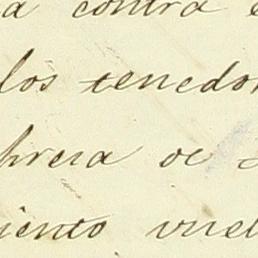 a contra e
los tenedor
de
iento vuel